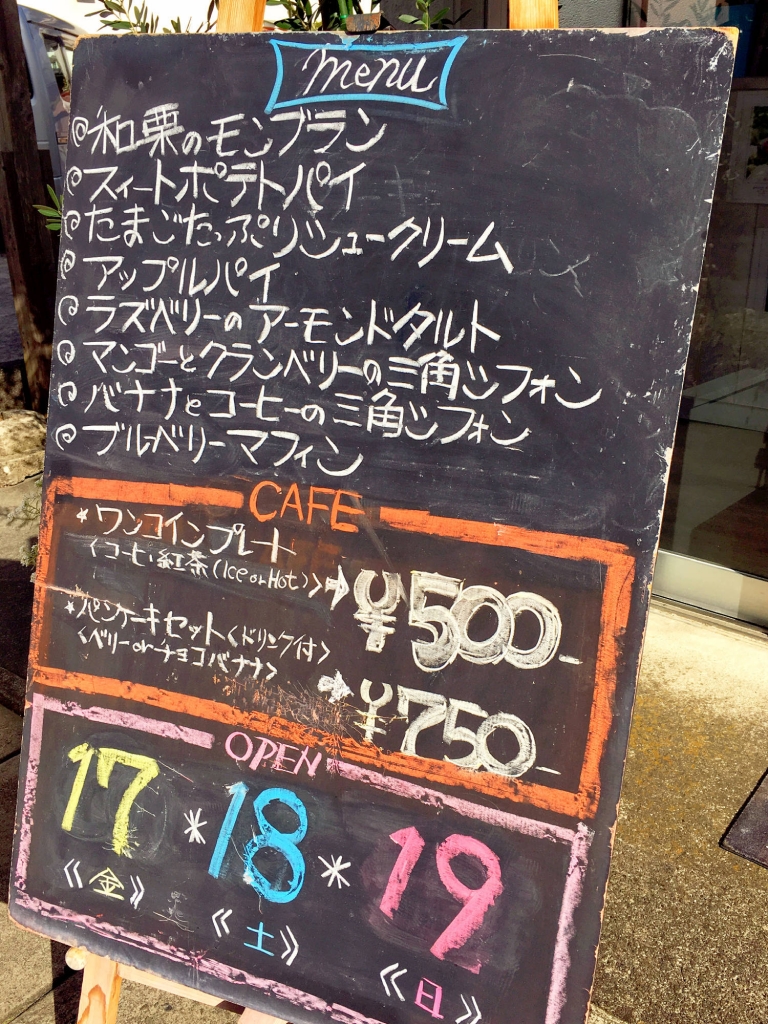 menu
和栗のモンブラン
スイートポテトパイ
たまごたっぷりシュークリーム
アップルパイ
ラズベリーのアーモンドタルト
マンゴーとクランベリーの三角シフォン
バナナとコーヒーの三角シフォン
ブルーベリーマフィン
CAFE
*ワンコインプレート
〈コーヒー, 紅茶(Ice or Hot)〉→ ¥500-
*パンケーキセット〈ドリンク付〉
〈ベリー or チョコバナナ〉
→ ¥750-
OPEN
17*18*19
《金》《土》《日》